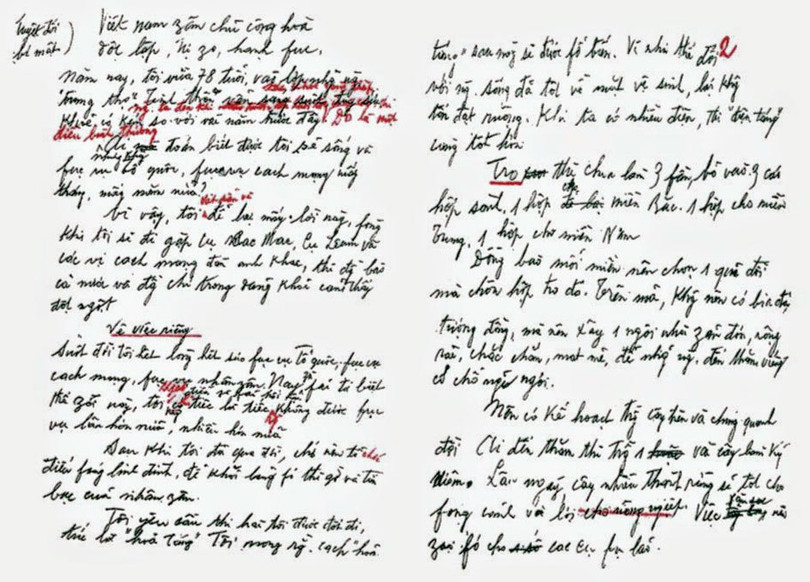 Tuyệt đối
bí mật )
Việt nam zân chủ cộng hoà
độc lập, tự zo, hạnh fúc.
Năm nay, tôi vừa 78 tuổi, vào lớp những ng.
"trung thọ". Tinh thần
khoẻ có kém so với vài năm trước đây. Đó là một
điều bình thường
Ai mà đoán biết được tôi sẽ sống và
fục vụ tổ quốc, fục vụ cách mạng mấy
tháng, mấy năm nữa?
Vì vậy, tôi để lại mấy lời này, fòng
khi tôi sẽ đi gặp cụ Các Mác, Cụ Lênin và
các vị cách mạng đàn anh khác, thì đồng bào
cả nước và đồng chí trong đảng khỏi cảm thấy
đột ngột.
Về việc riêng
Suốt đời tôi hết lòng hết sức fục vụ Tổ quốc, fục vụ
cách mạng, fục vụ nhân zân. Nay zù fải từ biệt
thế zới này, tôi
tiếc là tiếc không được fục
vụ lâu hơn nữa, nhiều hơn nữa
Sau khi tôi đã qua đời, chớ nên tổ chức
điếu fúng linh đình, để khỏi lãng fí thì giờ và tiền
bạc của nhân zân.
Tôi yêu cầu thi hài tôi được đốt đi,
tức là "hoả táng". Tôi mong rằng cách "hoả
2
táng" sau này sẽ được fổ biến. Vì như thế đối
với ng. sống đã tốt về mặt vệ sinh, lại khg
tốn đất ruộng. Khi ta có nhiều điện, thì "điện táng"
càng tốt hơn.
Tro thì chia làm 3 fần, bỏ vào 3 cái
hộp sành, 1 hộp cho miền Bắc. 1 hộp cho miền
Trung, 1 hộp cho miền Nam
Đồng bào mỗi miền nên chọn 1 quả đồi
mà chôn hộp tro đó. Trên mả, khg nên có bia đá
tượng đồng, mà nên xây 1 ngôi nhà zản đơn, rộng
rãi, chắc chắn, mát mẻ, để những ng. đến thăm viếng
có chỗ nghỉ ngơi.
Nên có kế hoạch trồng cây trên và chung quanh
đồi. Ai đến thăm thì trồng 1 vài cây làm kỷ
niệm. Lâu ngày cây nhiều thành rừng sẽ tốt cho
fong cảnh và lợi cho nông nghiệp. Việc săn sóc nên
zao fó cho các cụ fụ lão.